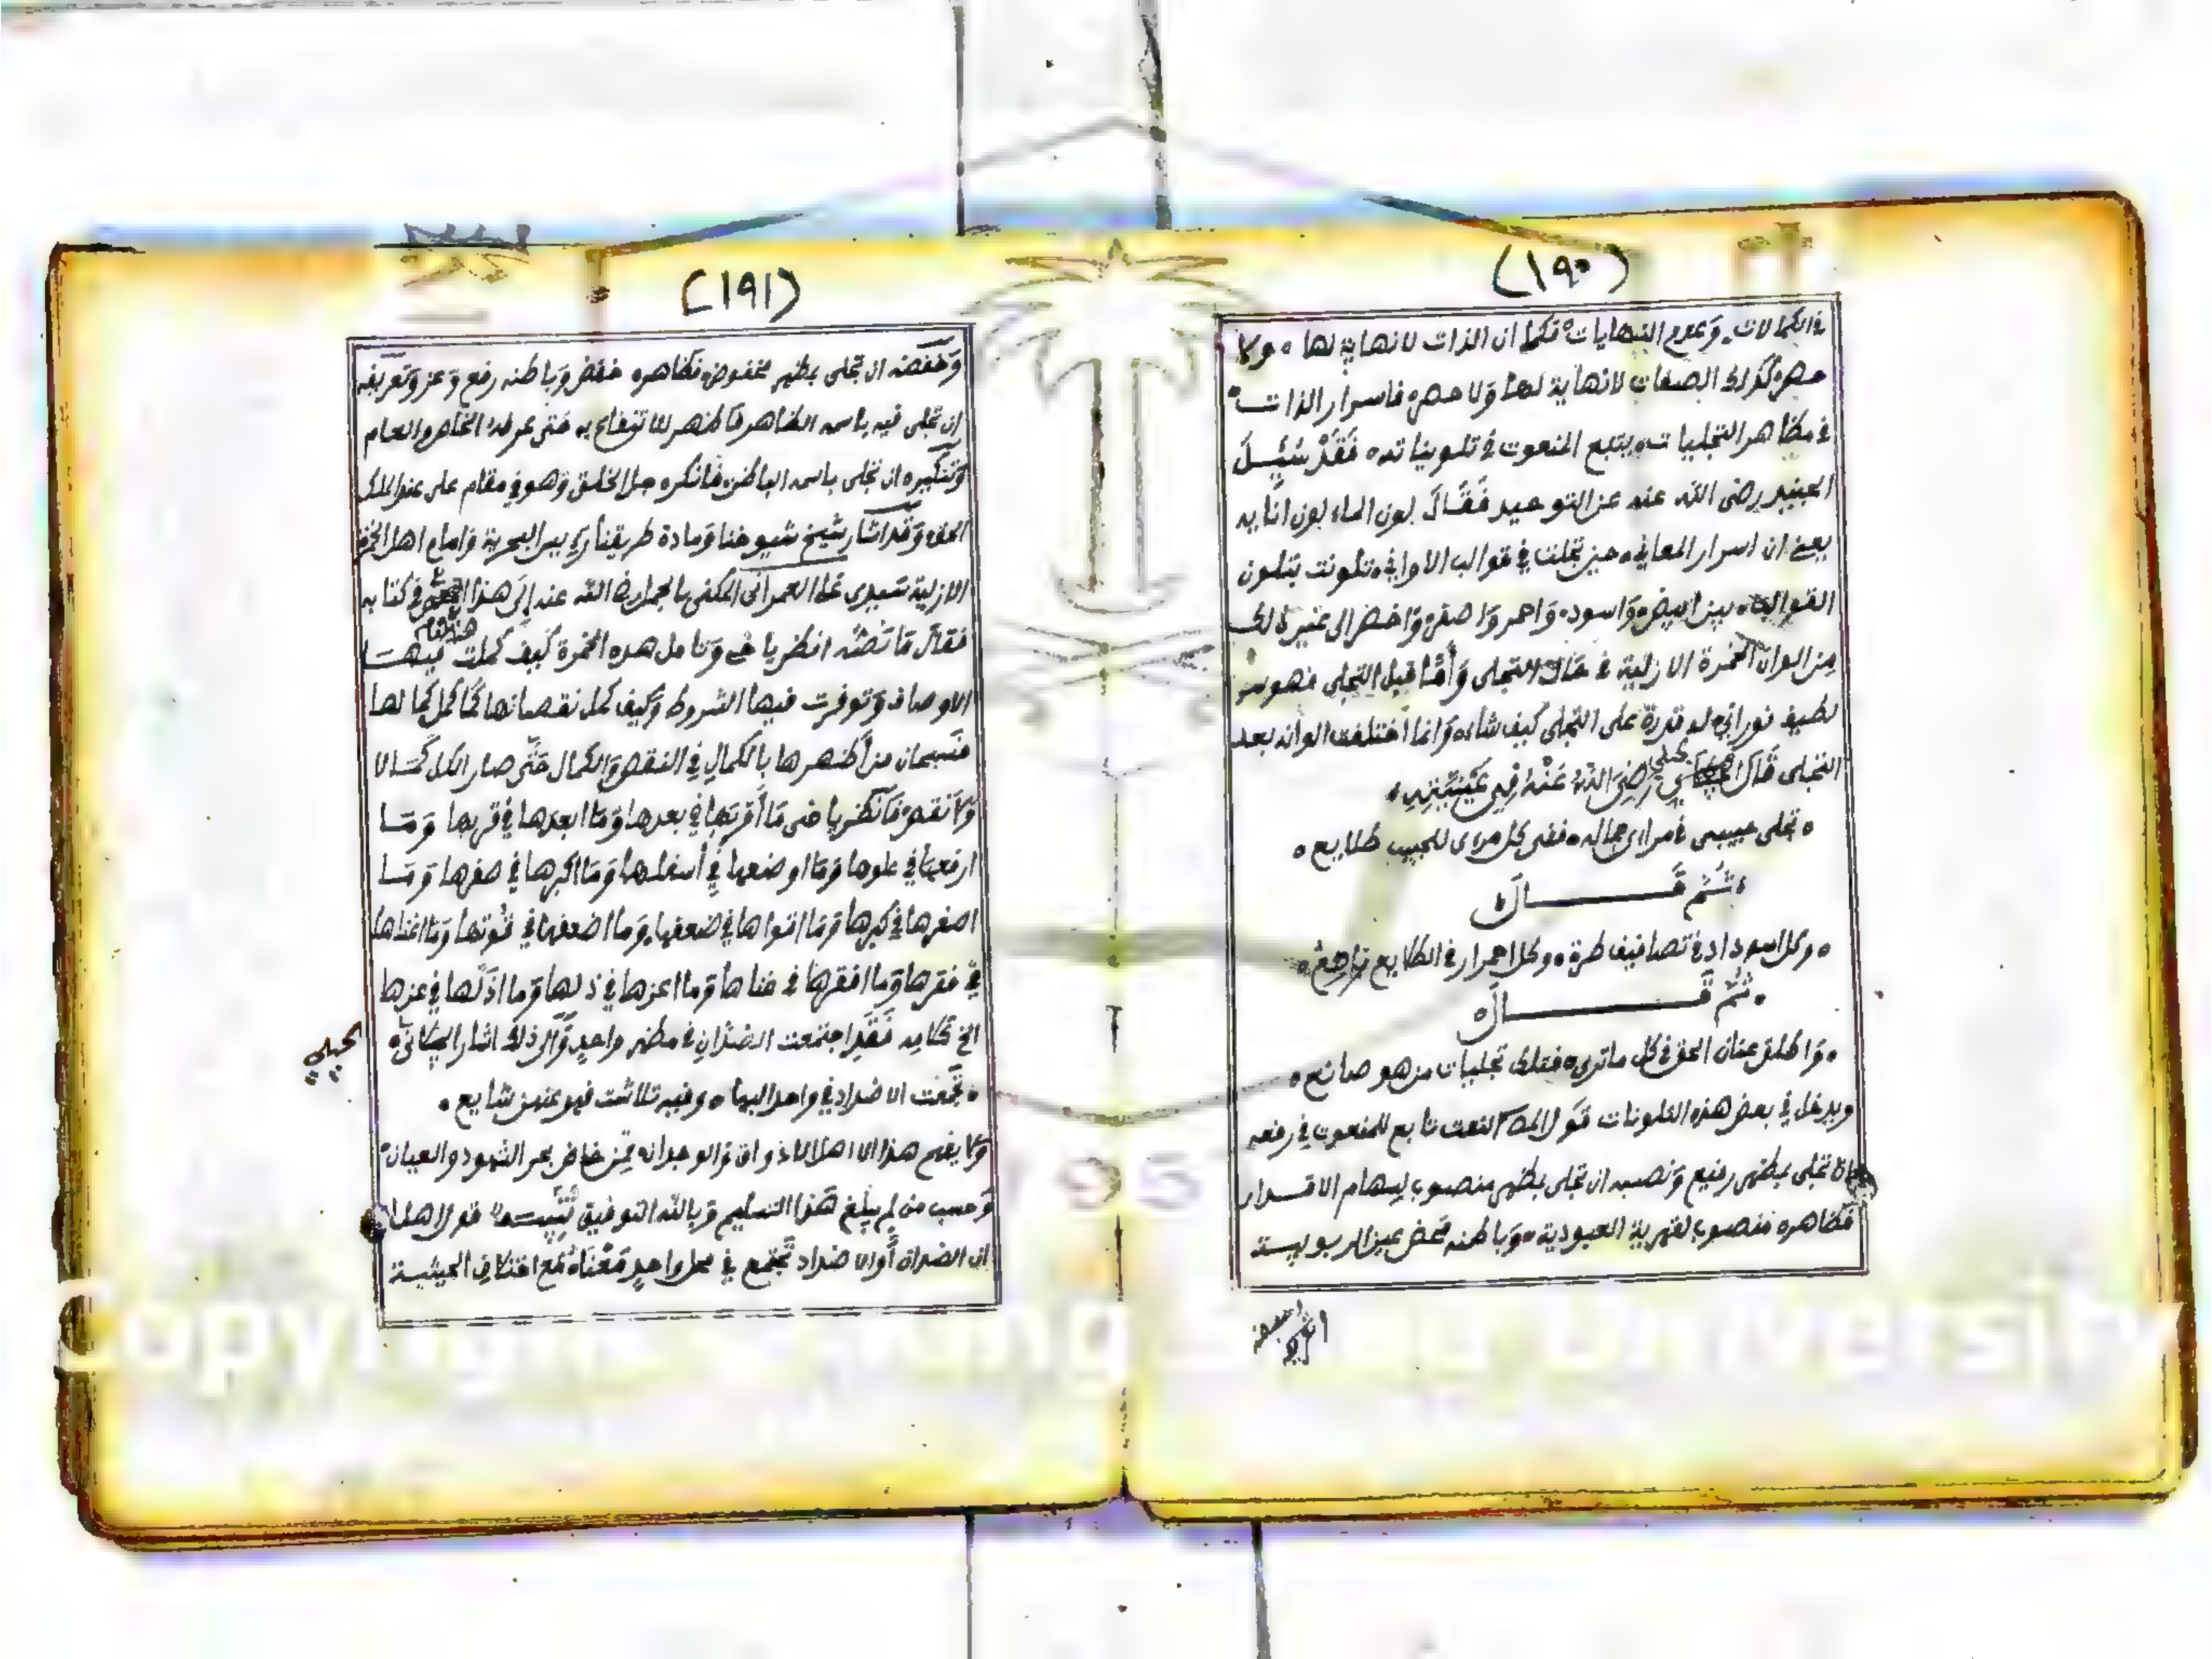 (١٩٠)
في الكمالات وعدم النهايات فكما ان الذات لا نهاية لها ولا
حصر كذلك الصفات لا نهاية لها ولا حصر فاسرار الذات
في مظاهر التجليات يتبع المنعوت في تلويناته فقد سئل
الجنيد رضي الله عنه عن التوحيد فقال لون الماء لون انايه
يعني ان اسرار المعاني حين تجلت في قوالب الاواني تلونت بتلون
القوالب بين ابيض واسود واحمر واصفر واخضر الى غير ذلك
من الوان الخمرة الازلية في حال التجلي وأما قبل التجلي فهو سر
لطيف نوراني له قدرة على التجلي كيف شاء وانما اختلفت الوانه بعد
التجلي قال الجيلي رضي الله عنه في عينيته
تجلى حبيبي في مراي جماله ففي كل مراى للحبيب طلايع
ثم قال
وكل اسوداد في تصافيف طرة وكل احمرار في الطلايع ناصع
ثم قال
واطلق عنان الحق في كل ماترى فتلك تجليات من هو صانع
ويدخل في بعض هذه التلونات قول المص النعت تابع للمنعوت في رفعه
ان تجلى بمظهر رفيع ونصبه ان تجلى بمظهر منصوب لسهام الاقدار
فظاهره منصوب لقهرية العبودية وباطنه محض عين الربوبية
(١٩١)
وخفضه ان تجلى بمظهر مخفوض فظاهره خفض وباطنه رفع وعز وتعريفه
ان تجلى فيه باسمه الظاهر فاظهر للانتفاع به حتى عرفه الخاص والعام
وتنكيره ان تجلى باسمه الباطن فانكره جل الخلق وهو في مقام على عند الملك
الحق وقد اشار شيخ شيوخنا ومادة طريقنا امام اهل الخمرة
الازلية سيدي على العمراني المكنى بالجمل رضي الله عنه إلى هذا المعنى في كتابه
فقال ما نصه انظر يا خي وتامل هذه الخمرة كيف كملت فيها
هذه
الاوصاف وتوفرت فيها الشروط وكيف كمل نقصانها كما كمل كمالها
فسبحان من أظهرها بالكمال في النقص والكمال حتى صار الكل كمالا
ولا نقص فانظر يا خي ما أقربها في بعدها وما ابعدها في قربها وما
ارفعها في علوها وما اوضعها في أسفلها وما اكبرها في صغرها وما
اصغرها في كبرها وما اقواها في ضعفها وما اضعفها في قوتها وما اغناها
في فقرها وما افقرها في غناها وما اعزها في ذلها وما اذلها في عزها
الخ كلامه فقد اجتمعت الضدان في مظهر واحد وإلى ذلك اشار الجيلي
تجمعت الاضداد في واحد البها وفيه تلاشت فهو عنهن شايع
ولا يفهم هذا الا اهل الاذواق والوجدان ممن خاض بحر الشهود والعيان
وحسب من لم يبلغ هذا التسليم وبالله التوفيق تنبيه قولا اهل
ان الضدان أو الاضداد تجتمع في محل واحد معناه مع اختلاف الحيثية
الجيلي